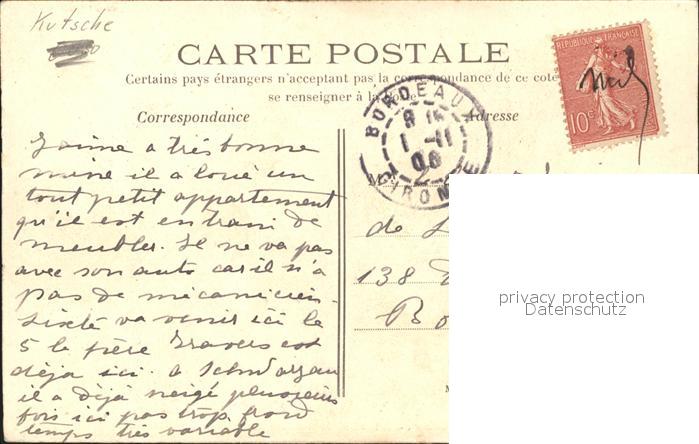 Kutsche
CARTE POSTALE
Certains pays étrangers n'acceptant pas la correspondance de ce côté
se renseigner à la Poste
Correspondance
Adresse
REPUBLIQUE FRANÇAISE
10c
BORDEAUX
1 -11
GIRONDE
Jaime a très bonne
mine il a loué un
tout petit appartement
qu'il est en train de
meubler. Il ne va pas
avec son auto car il n'a
pas de mécanicien.
Sixte va venir ici le
5 le père Travers est
déja ici. a
il a déjà neigé plusieurs
fois ici pas trop froid
temps très variable
M
de
138
Bo
privacy protection
Datenschutz